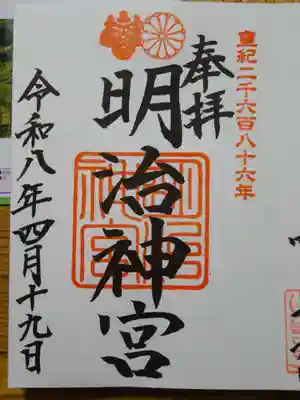 皇紀二千六百八十六年
奉拝
明治神宮
令和八年四月十九日